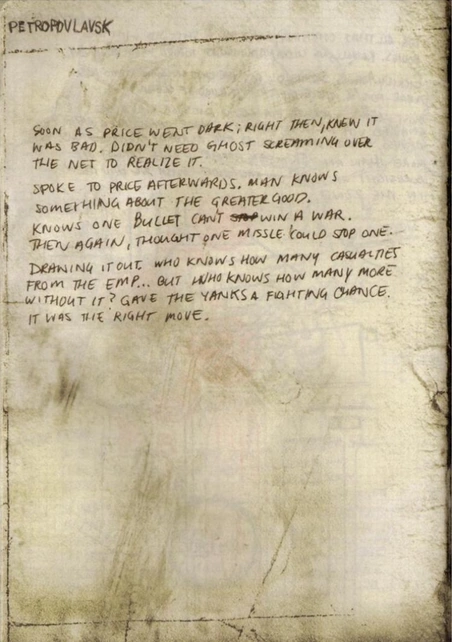 PETROPOVLAVSK
SOON AS PRICE WENT DARK; RIGHT THEN, KNEW IT
WAS BAD. DIDN'T NEED GHOST SCREAMING OVER
THE NET TO REALIZE IT.
SPOKE TO PRICE AFTERWARDS. MAN KNOWS
SOMETHING ABOUT THE GREATER GOOD.
KNOWS ONE BULLET CAN'T STOP WIN A WAR.
THEN AGAIN, THOUGHT ONE MISSLE COULD STOP ONE.
DRAWING IT OUT, WHO KNOWS HOW MANY CASUALTIES
FROM THE EMP... BUT WHO KNOWS HOW MANY MORE
WITHOUT IT? GAVE THE YANKS A FIGHTING CHANCE.
IT WAS THE RIGHT MOVE.